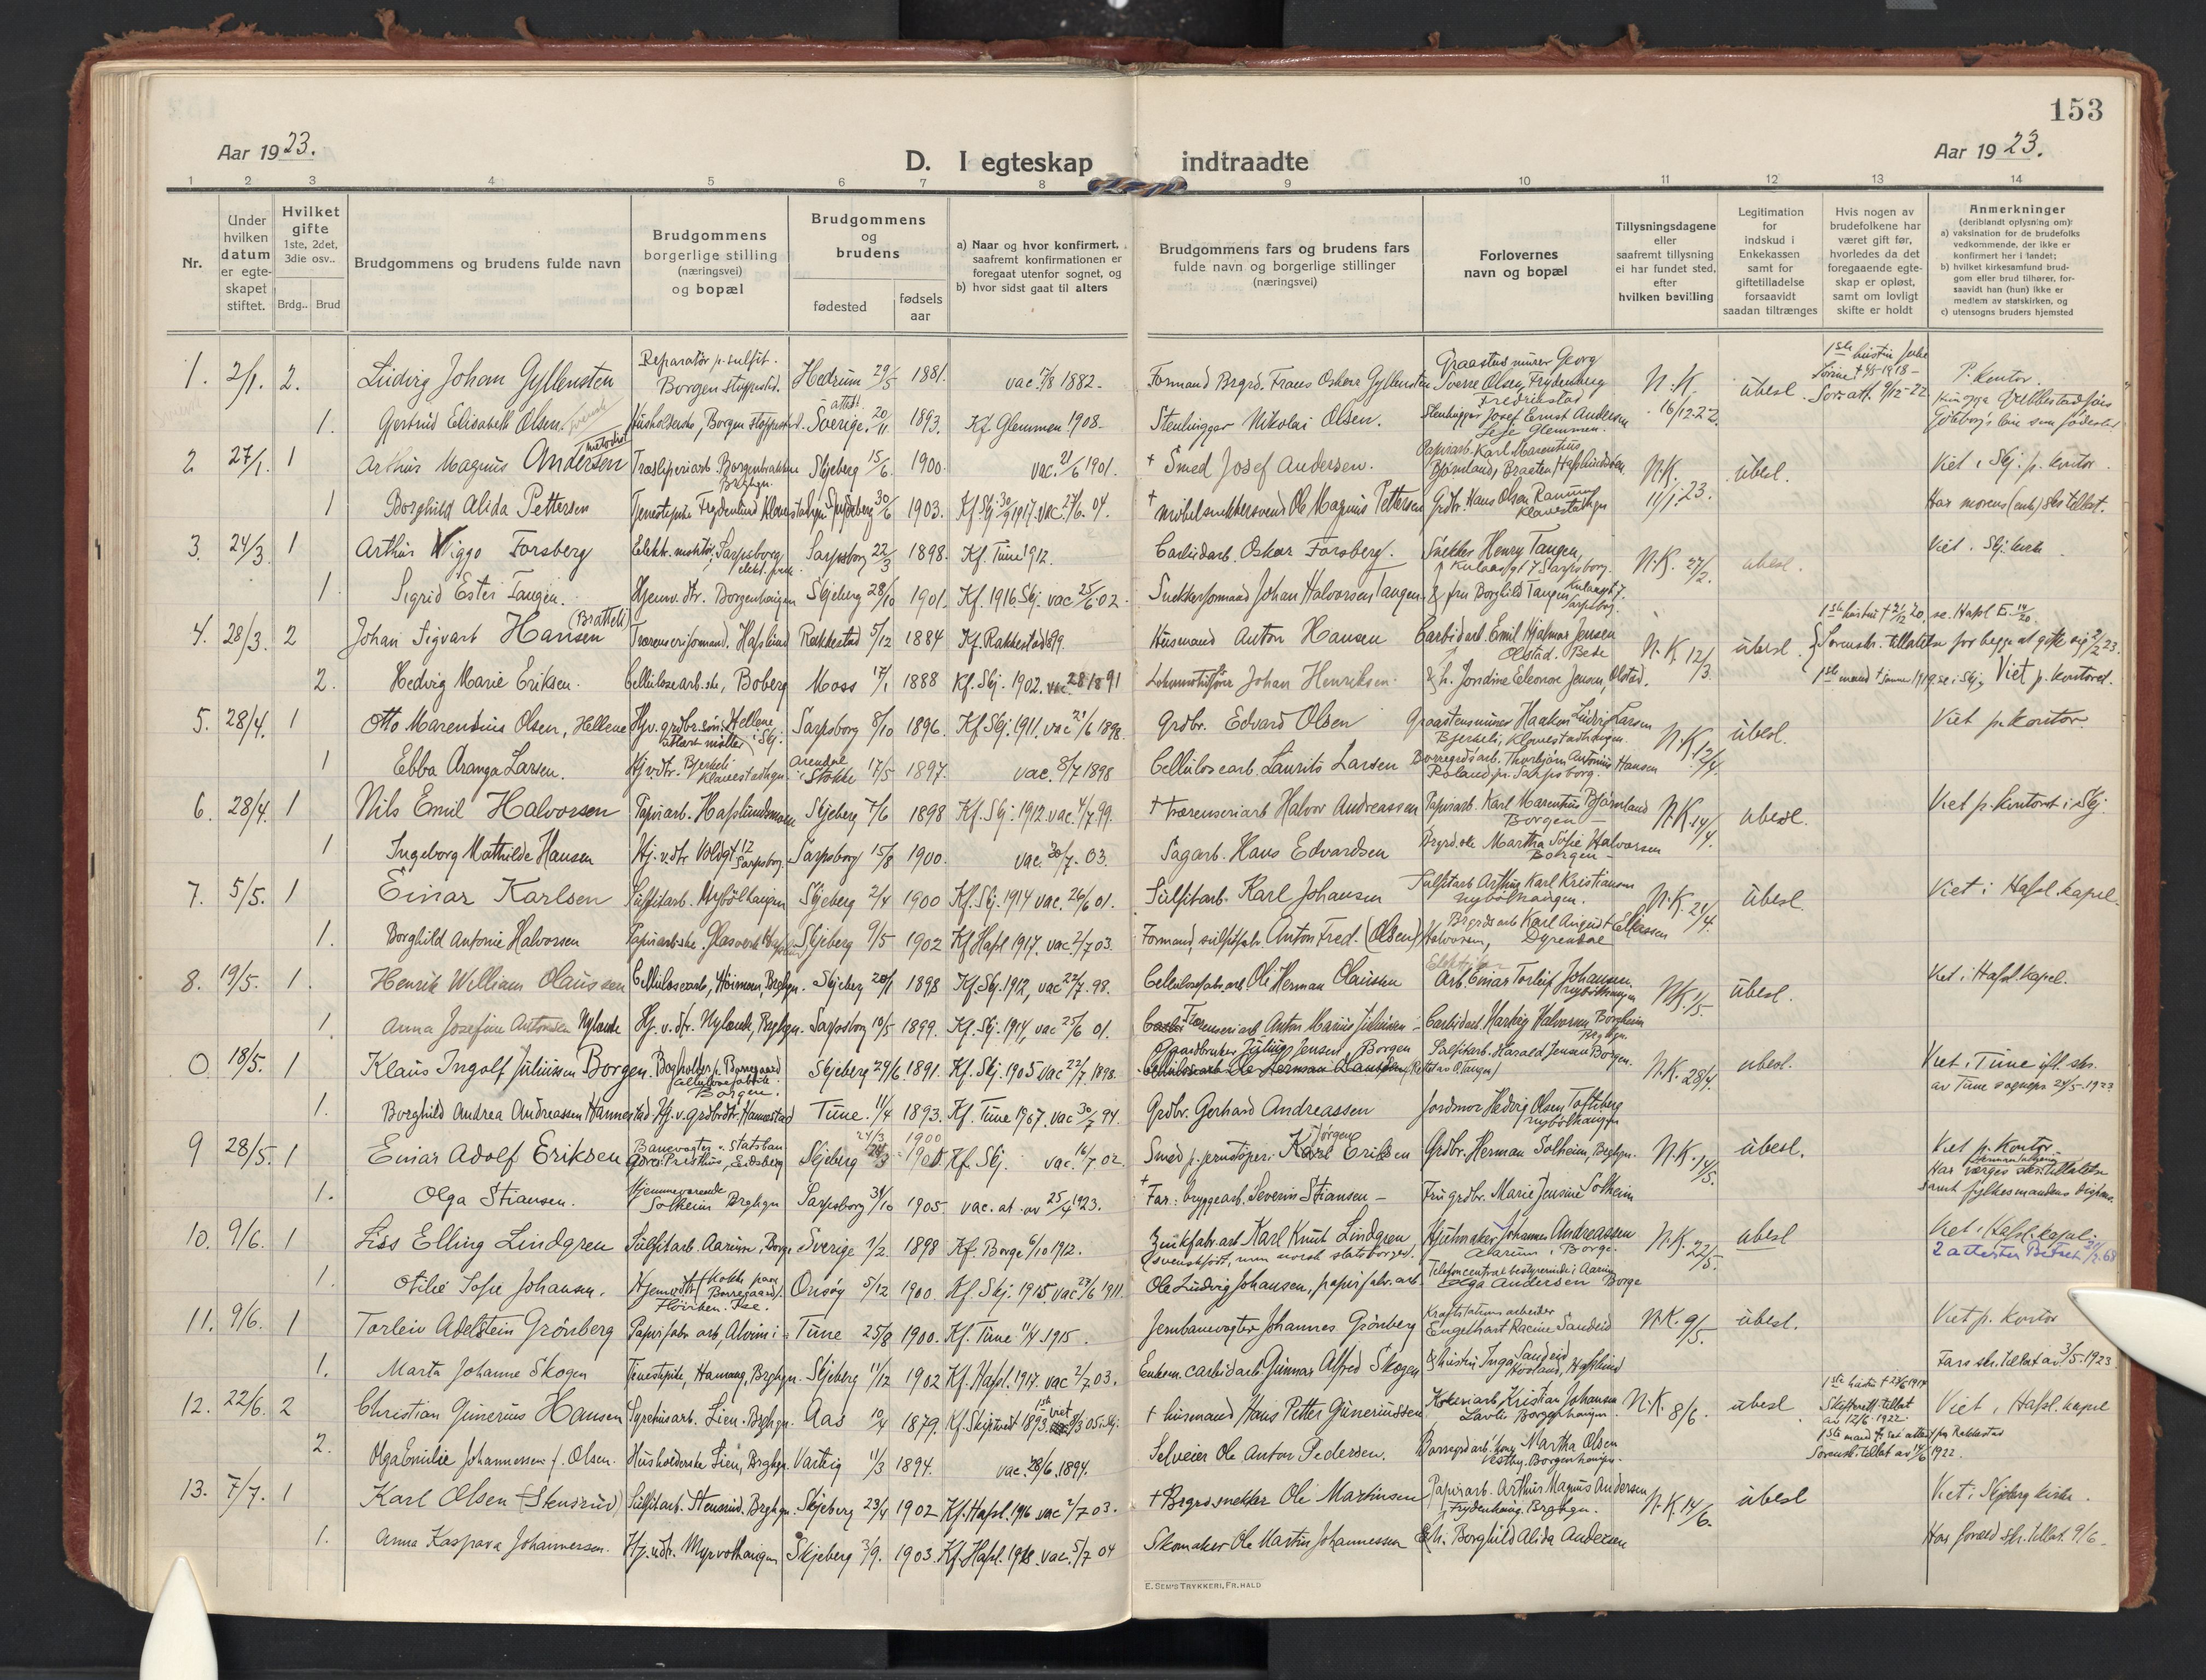 153
Aar 1923.
D. I egteskap indtraadte
Aar 1923.
1 2 3 4 5 6 7 8 9 10 11 12 13 14
Nr.
Under hvilken datum er egteskapet stiftet.
Hvilket gifte 1ste, 2det, 3die osv..
Brdg.. Brud
Brudgommens og brudens fulde navn
Brudgommens borgerlige stilling (næringsvei) og bopæl
Brudgommens og brudens
fødested
fødsels aar
a) Naar og hvor konfirmert, saafremt konfirmationen er foregaat utenfor sognet, og
b) hvor sidst gaat til alters
Brudgommens fars og brudens fars fulde navn og borgerlige stillinger (næringsvei)
Forlovernes navn og bopæl
Tillysningsdagene eller saafremt tillysning ei har fundet sted, efter hvilken bevilling
Legitimation for indskud i Enkekassen samt for giftetilladelse forsaavidt saadan tiltrænges
Hvis nogen av brudefolkene har været gift før, hvorledes da det foregaaende egteskap er opløst, samt om lovligt skifte er holdt
Anmerkninger (deriblandt oplysning om):
a) vaksination for de brudefolks vedkommende, der ikke er konfirmert her i landet;
b) hvilket kirkesamfund brudgom eller brud tilhører, forsaavidt han (hun) ikke er medlem av statskirken, og
c) utensogns bruders hjemsted
1. 2/1. 2. Ludvig Johan Gyllensten Reparatør p. sulfit. Borgen stoppested. Hedrum 29/5 1881. vac. 17/8 1882. Formand Brgrd. Frans Oskar Gyllensten Graastensmurer Georg Sverre Olsen, Frydenberg Fredrikstad N.K. 16/12-22. ubesl. P. Kontor.
1. Gjertrud Elisabeth Olsen. Husholderske, Borgen stoppested. Sverige. 20/11 1893. Kf. Glemmen 1908. Stenhugger Nikolai Olsen. Stenhugger Josef Ernst Andersen Glemmen.
2 27/1. 1 Arthur Magnus Andersen metodist Træsliperiarb. Skjeberg 15/6 1900. vac. 21/6 1901. † Smed Josef Andersen. Papirarb. Karl Marentius Bjørnland, Braaten, Hafslundsøen N.K. 11/1.23. ubesl. Viet i Skj. p. kontor.
1 Borghild Alida Pettersen Skjeberg 30/6 1903. Kf. Skj. 30/9 1917. vac. 27/6. 04. † møbelsnekkersvend Ole Magnus Pettersen Grdbr. Hans Olsen Klavestadhgn Har morens (enke) skr. tillat.
3. 24/3. 1 Arthur Wiggo Forsberg Elekt. montør, Sarpsborg Sarpsborg 22/3 1898. Kf. Tune 1912. Carbidarb. Oskar Forsberg. Snekker Henry Tangen, Kulaasgt 7 Sarpsborg. N.K. 27/2. ubesl. Viet i Skj. kirke
1. Sigrid Ester Tangen. Hjemv. dtr. Borgenhaugen Skjeberg 28/10 1901. Kf. 1916. Skj. vac 25/6. 02. Snekkerformand Johan Halvorsen Tangen & fru Borghild Tangen Kulaasgt 7. Sarpsborg.
4. 28/3. 2 Johan Sigvart Hansen (Bratteli) Træmesriformand. Hafslund Rakkestad 5/12 1884 Kf. Rakkestad 1899. Husmand Anton Hansen Carbidarb. Emil Hjalmar Jensen Olstad. N.K. 12/3. ubesl.
2. Hedvig Marie Eriksen. Cellulosearb.ske, Boberg Moss 17/1 1888 Kf. Skj. 1902. Lokomotivfører Johan Henriksen. & h. Jondine Eleonore Jensen, Olstad. Viet p. kontoret.
5. 28/4. 1 Otto Marensius Olsen, Hellene Hjv. grdbr. søn. Hellene i Skj. Sarpsborg 8/10 1896. Kf Skj. 1911. vac 21/6 1898. Grdbr. Edvard Olsen Graastensmurer Haakon Ludvig Larsen Bjerkeli, Klavestadhaugen. N.K. 12/4. ubesl. Viet p. kontor.
1 Ebba Aranga Larsen. Hjv. dtr. Bjerkeli Klavestadhgn. Stokke 17/5 1897. vac. 8/7 1898 Cellulosearb. Laurits Larsen Borregrdsarb. Thorbjørn Antonius Hansen Roland pr. Sarpsborg.
6. 28/4. 1 Nils Emil Halvorsen Papirarb. Hafslundsøen Skjeberg 7/6 1898 Kf. Skj. 1912. vac. 4/7 99. † Træmesriarb Halvor Andreassen Papirarb. Karl Marentius Bjørnland Borgen N.K. 14/4. ubesl. Viet p. kontoret i Skj.
1 Ingeborg Mathilde Hansen Hj. v. dtr. Voldgt 12 Sarpsborg Sarpsborg 15/8 1900. vac. 30/7. 03. Sagarb. Hans Edvardsen Martha Sofie Halvorsen Borgen
7. 5/5. 1 Einar Karlsen Sulfitarb. Nybølhaugen Skjeberg 2/4 1900 Kf. Skj. 1914 vac. 26/6 01. Sulfitarb. Karl Johansen Sulfitarb Arthur Karl Kristiansen Nybølhaugen. N.K. 21/4. ubesl. Viet i Hafsl. kapel.
1. Borghild Antonie Halvorsen Papirarb.ske. Glasverket Skjeberg 9/5 1902 Kf Hafsl 1917. vac 2/7 03. Formand, sulfitfabr. Anton Fred. (Olsen) Halvorsen, Brgrds arb Karl August Eliassen Dyrendal
8. 19/5. 1. Henrik William Olaussen Cellulosearb, Høimoen, Brghgn. Skjeberg 28/1 1898 Kf. Skj. 1912, vac 22/7. 98. Cellulosefabr.arb. Ole Herman Olaussen Arb. Einar Torleif Johansen. Nybølhaugen N.K. 1/5. ubesl. Viet i Hafsl. kapel.
1. Anna Josefine Antonsen Nylænde Hj. v. dtr. Nylænde, Brghgn. Sarpsborg 10/5 1899. Kf. Skj. 1914, vac 25/6 01. Træmesriarb Anton Marius Juliussen Carbidarb. Hartvig Halvorsen, Borgheim Brghgn.
0 18/5. 1 Klaus Ingolf Juliussen Borgen. Bogholder p. Borregaard Cellulosefabrik. Borgen. Skjeberg 24/6. 1891. Kf. Skj. 1905 vac 22/7 1898. Gaardbruker Julius Jensen, Borgen Sulfitarb. Harald Jensen Borgen. N.K. 28/4. ubesl. Viet i Tune av Tune sogneprest 24/5-1923
1. Borghild Andrea Andreassen Hannestad Hj. v. grdbrdtr. Hannestad Tune. 11/4 1893. Kf. Tune 1907. vac 30/7 94. Grdbr. Gerhard Andreassen Jordmor Hedvig Olsen Tofteberg Nybølhaugen
9 28/5. 1 Einar Adolf Eriksen Banevogter v. Statsban Presthus, Eidsberg Skjeberg 24/3 1900 Kf. Skj. vac. 16/7 02. Smed p. jernstøperi Karl Jørgen Eriksen Grdbr. Herman Solheim, Brghgn. N.K. 14/5. ubesl. Viet p. Kontor
1. Olga Stiansen. Hjemmeværende Solheim Brghgn Sarpsborg 31/10 1905. vac. at. av 25/4 1923. † Far. bryggearb. Severin Stiansen Fru grdbr. Marie Jensine Solheim samt fylkesmandens
10. 9/6. 1 Liss Elling Lindgren Sulfitarb. Aarum, Borge Sverige 1/2 1898 Kf. Borge 6/10 1912. Zinkfabr.arb Karl Knut Lindgren (svenskfødt, nu norsk statsborger) Johannes Andreassen Aarum i Borge. N.K. 22/5. ubesl Viet i Hafsl. kapel. 2 attester
1. Otilie Sofie Johansen. Hjemv.dtr. (Kokke paa Borregaard). Onsøy 5/12 1900 Kf. Skj. 1915. vac 27/6 1911. Ole Ludvig Johansen, papirfabr. arb. Telefoncentralbestyrerinde i Aarum Olga Andersen Borge
11. 9/6. 1 Torleiv Adelstein Grönberg Papirfabr. arb, Alvim i Tune 25/8 1900. Kf. Tune 11/4 1915. Jernbanevogter Johannes Grönberg Kraftstationsarbeider Engelhart Racine Sandeid N.K. 9/5. ubesl. Viet p. Kontor
1. Marta Johanne Skogen Tjenestepike, Hamang, Brghgn. Skjeberg 11/12 1902 Kf. Hafsl. 1917. vac 2/7 03. Enkem. carbidarb. Gunnar Alfred Skogen & hustru Inga Sandeid, Hafslund Fars skr. tillat av 3/5. 1923
12. 22/6. 2 Christian Gunerius Hansen Syrehusarb. Lien. Brghgn. Aas 10/4 1879. Kf. Skiptvet 1893. † husmand Hans Petter Gunerussen Kristian Johansen Borgenhaugen. N.K. 8/6. ubesl Skifterett. tillat av 12/6. 1922. Viet i Hafsl. kapel
2. Olga Emilie Johannessen f. Olsen. Husholderske Lien, Brghgn. Varteig 11/3 1894. vac. 28/6. 1894. Selveier Ole Anton Pedersen. Martha Olsen Borgenhaugen.
13. 7/7. 1 Karl Olsen (Stensrud) Sulfitarb. Stensrud. Brghgn. Skjeberg 23/4 1902 Kf. Hafsl. 1916 vac 2/7 03. † Brgrdsnekker Ole Martinsen Papirarb. Arthur Magnus Andersen Brghgn. N.K. 14/6. ubesl Viet i Skjeberg kirke.
1. Anna Kaspara Johannessen. Hj. v. dtr. Myrvolhaugen Skjeberg 3/9. 1903. Kf. Hafsl. 1918. vac. 5/7 04 Skomaker Ole Martin Johannessen & h. Borghild Alida Andersen Har foreld. skr. tillat. 9/6
E. SEM'S TRYKKERI, FR.HALD